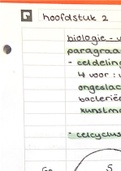 hoofdstuk 2
biologie -
paragraa
- celdeling
4 voor :
ongeslac
bacterieë
kunstma
- celcyclus